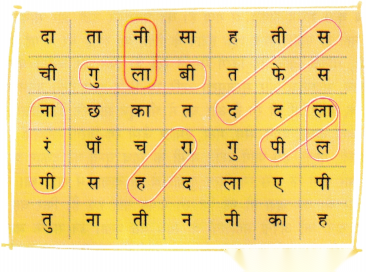 दा ता नी सा ह ती स
ची गु ला बी त फे स
ना छ का त द द ला
रं पाँ च रा गु पी ल
गी स ह द ला ए पी
तु ना ती न नी का ह